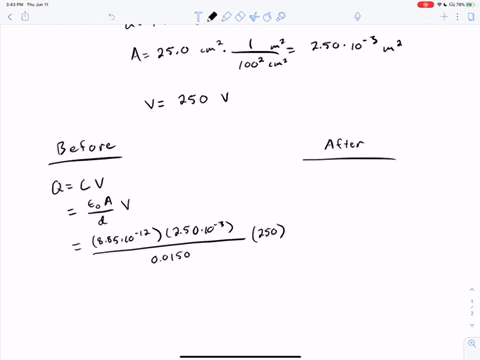 3:43 PM Thu Jun 11
78%
A = 25.0 cm² · 1 m² / 100² cm² = 2.50 · 10⁻³ m²
V = 250 V
Before
After
Q = CV
= ε₀A / d V
= (8.85·10⁻¹²)(2.50·10⁻³) / 0.0150 (250)
1
2